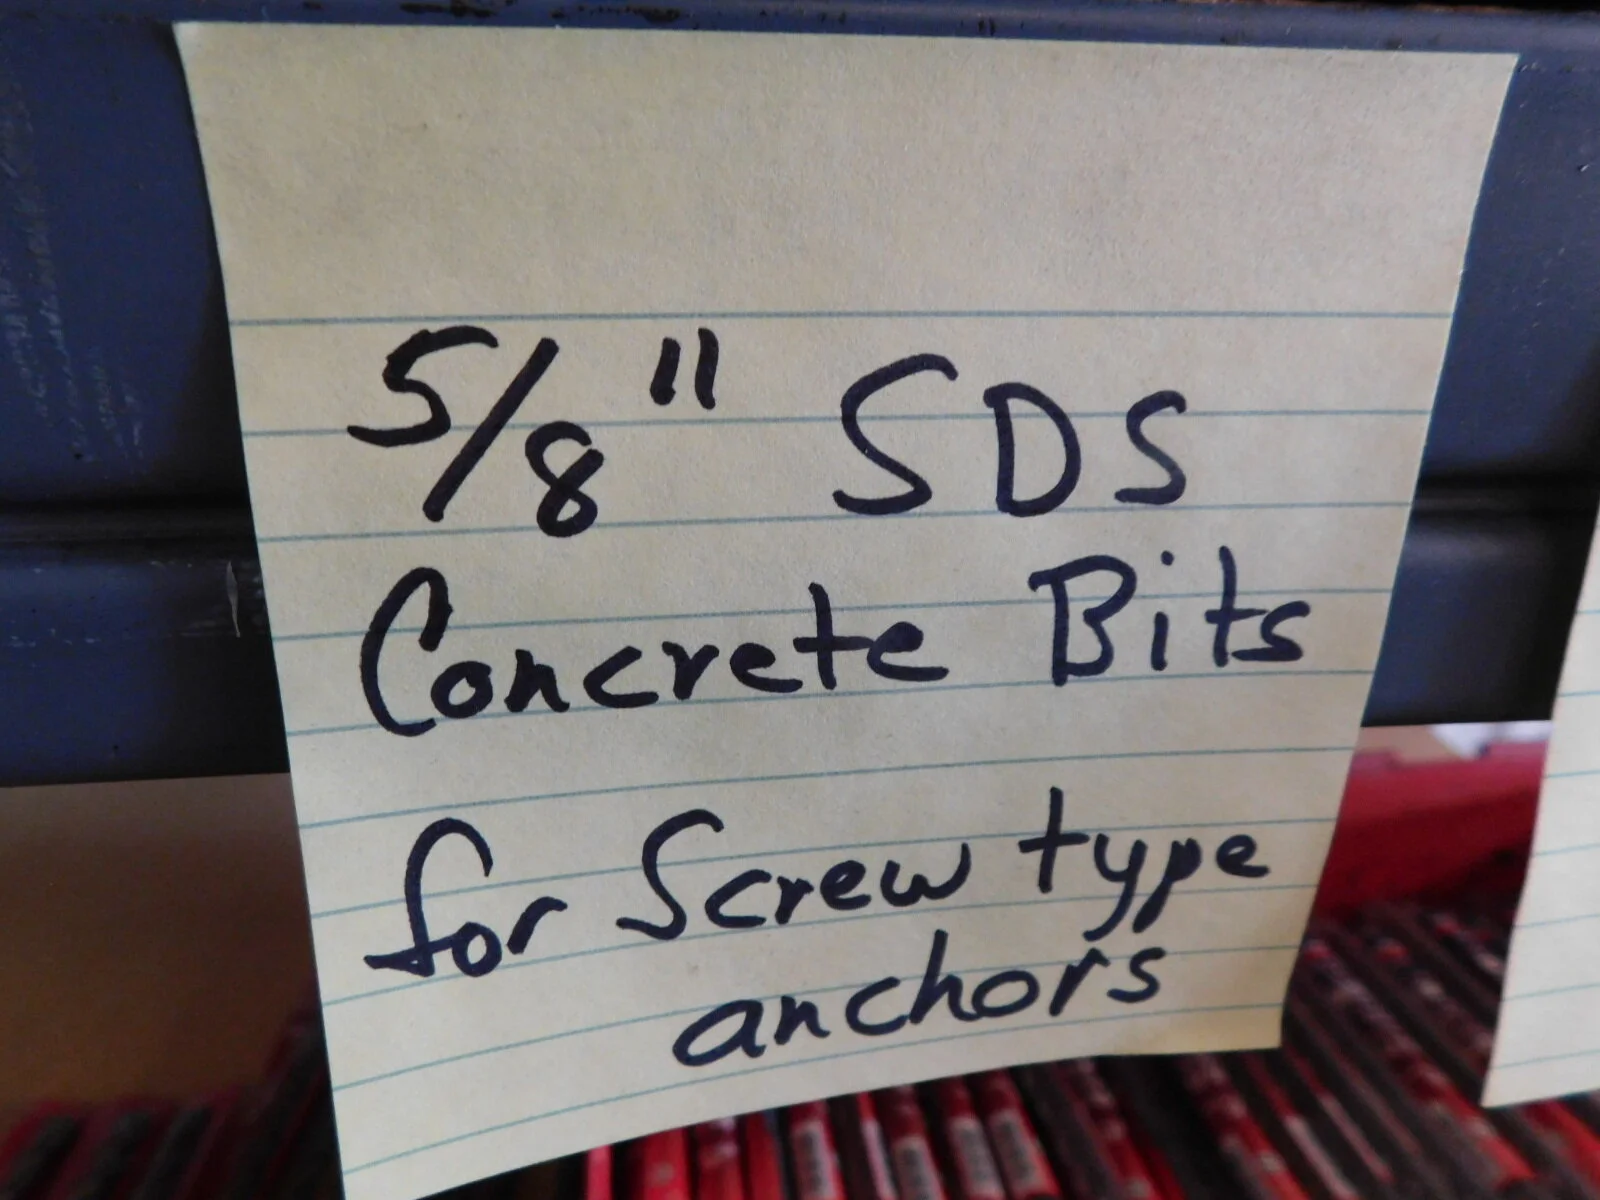 5/8" SDS
Concrete Bits
for Screw type
anchors